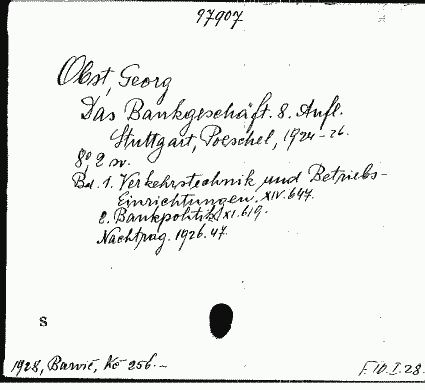 97907
Obst, Georg
Das Bankgeschäft. 8. Aufl.
Stuttgart, Poeschel, 1924-26.
8º, 2 sv.
Bd. 1. Verkehrstechnik und Betriebs-
Einrichtungen. XIV. 647.
2. Bankpolitik. XI. 619.
Nachtrag. 1926. 47.
S
1928, Barvič, Kč 256.-
F. 10. I. 28.